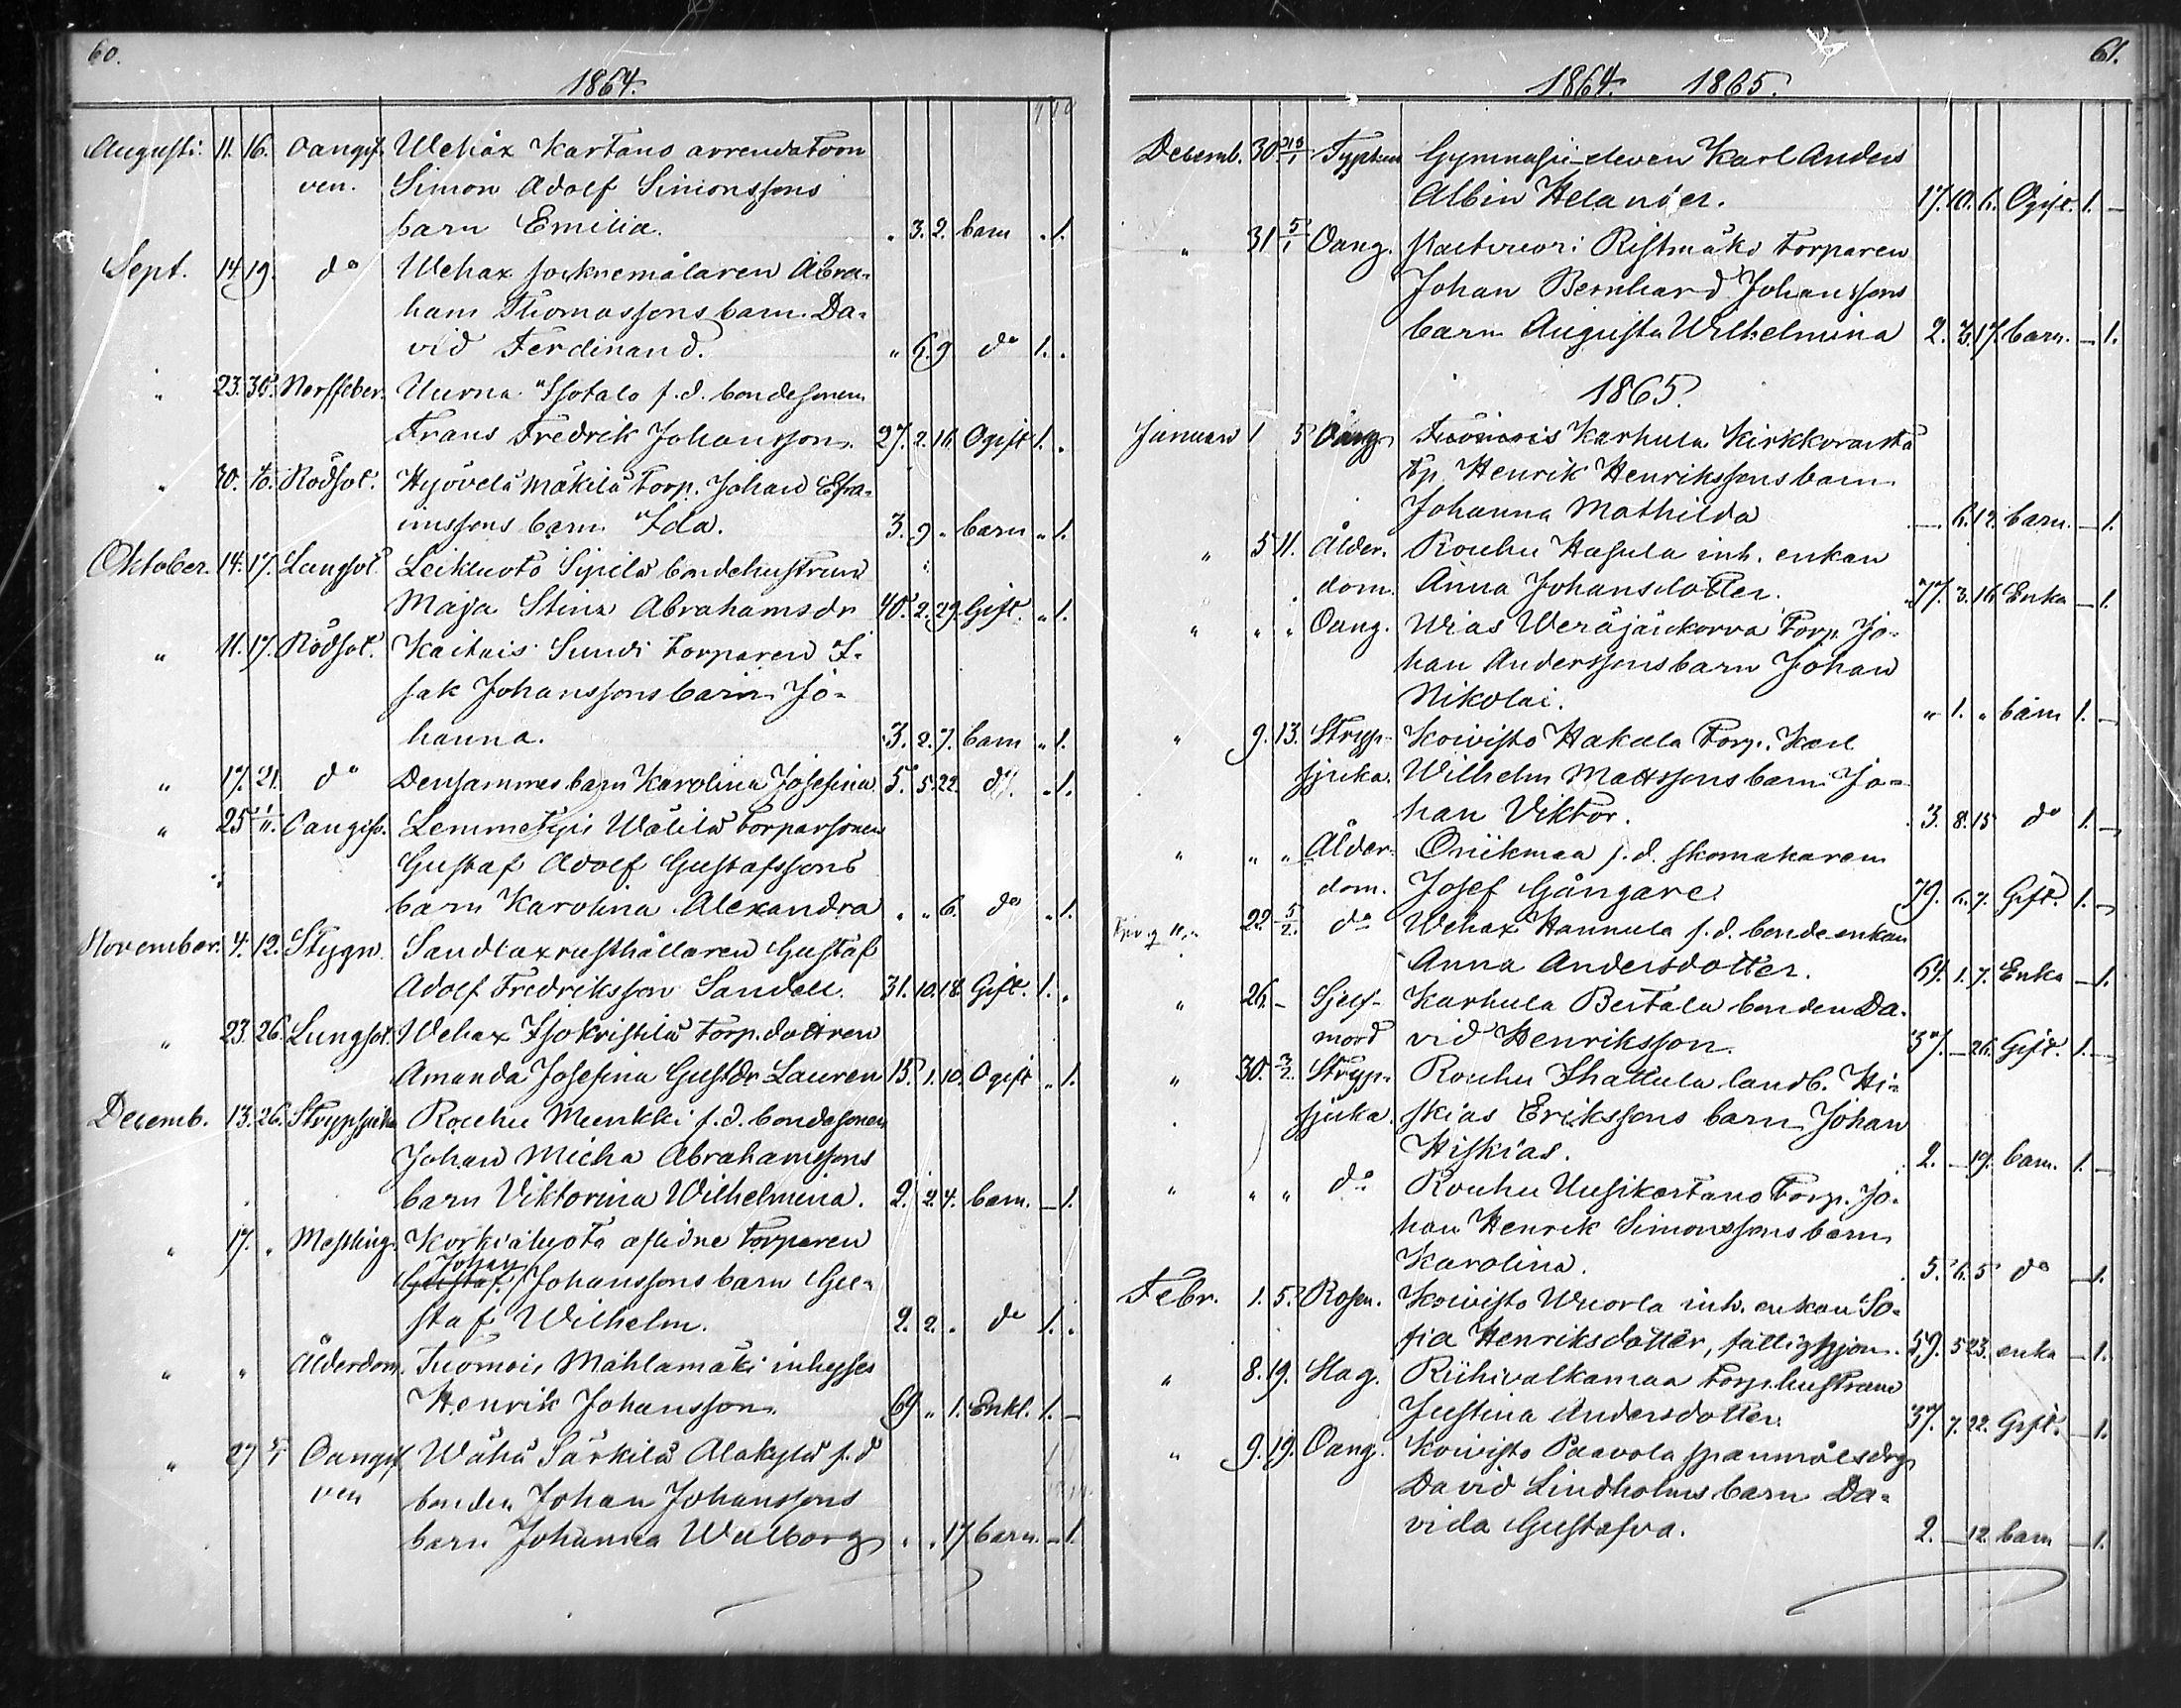 60.
1864.
Augusti. 11. 16. Oangif- Wehax Kartano arrendatorn
ven. Simon Adolf Simonssons
barn Emilia. „ 3. 2. barn „ 1.
Sept. 14. 19. do Wehax socknemålaren Abra-
ham Thomassons barn Da-
vid Ferdinand. „ 6. 9 do 1. „
„ 23. 30. Nerffeber. Uurna Isotalo f.d. bondesonen
Frans Fredrik Johansson. 27. 2. 16. Ogift 1. „
„ 30. Rödsot. Hyövelä Mäkilä torp. Johan Efra-
imssons barn Ida. 3. 9 „ barn „ 1.
Oktober. 14. 17. Lungsot. Leikluoto Sipilä bondehustrun
Maja Stina Abrahamsdr 40. 2. 29. Gift. „ 1.
„ 11. 17. Rödsot. Kaituis Sundi torparen I-
sak Johanssons barn Jo-
hanna. 3. 2. 7. barn „ 1.
„ 17. 21. do Densammes barn Karolina Josefina 5. 5. 22. do. „ 1.
„ 25 1/11. Oangifv. Lemmetyis Wälilä torparsonen
Gustaf Adolf Gustafssons
barn Karolina Alexandra „ „ 6. do „ 1.
November. 4. 12. Stygn. Sandtax rusthållaren Gustaf
Adolf Fredriksson Sandell. 31. 10. 18. Gift. 1. „
„ 23. 26. Lungsot. Wehax Isokristilä torp. dottren
Amanda Josefina Gustdr Lauren 15. 1. 10. Ogift „ 1.
Decemb. 13. 26. Strypsjuka Rouhu Munkki f.d. bondesonen
Johan Micha Abrahamssons
barn Viktorina Wilhelmina. 2. 2. 4. barn. – 1.
„ 17. „ Messling. Korkialuota aflidne torparen
Johan
Gustaf Johanssons barn Gu-
staf Wilhelm. 2. 2. „ do 1. „
„ „ Ålderdom. Tuomois Mahlamäki inhyses
Henrik Johansson. 69 „ 1. Enkl. 1. –
„ 27 Oangif- Wähä Särkilä Alakylä f.d
ven bonden Johan Johanssons
barn Johanna Walborg „ „ 17. barn. – 1.
61.
1864. 1865.
Decemb. 30 Typhus Gymnasii-eleven Karl Anders
Albin Helander. 17. 10. 6. Ogift. 1. –
„ 31 5/1 Oang. Ristmäki torparen
Johan Bernhard Johanssons
barn Augusta Wilhelmina 2. 3. 17. barn. – 1.
1865.
Januari 1 5 Oang. Tuomois Karhula Kirkkoranta
tp. Henrik Henrikssons barn
Johanna Mathilda – 6. 12. barn. – 1.
„ 5 11. Ålder- Rouhu Hasula inh. enkan
dom. Anna Johansdotter. 77. 3. 16. Enka – 1.
„ „ „ Oang. Wias Weräjänkorva torp. Jo-
han Anderssons barn Johan
Nikolai. „ 1. „ barn 1. –
„ 9. 13. Stryp- Koivisto Hakala torp. Karl
sjuka. Wilhelm Mattssons barn Jo-
han Viktor. 3. 8. 15 do 1. –
„ „ „ Ålder- Oriikmaa f.d. skomakaren
dom. Josef Gångare. 79. 6. 7. Gift. 1. –
22. 5/2. do Wehax Hannula f.d. bonde-enkan
Anna Andersdotter. 64. 1. 7. Enka – 1.
„ 26. – Sjelf- Karhula Bertala bonden Da-
mord vid Henriksson. 37. – 26. Gift. 1. –
„ 30. 3/2. Stryp- Rouhu Ihattula landb. Hi-
sjuka. skias Erikssons barn Johan
Hiskias. 2. – 19. barn. 1. –
„ „ „ do Rouhu Uusikartano torp. Jo-
han Henrik Simonssons barn
Karolina. 5. 6. 5 do – 1.
Febr. 1. 5. Rosen. Koivisto Wuorla inh. enkan So-
fia Henriksdotter, fattighjon. 59. 5 23. enka – 1.
„ 8. 19. Slag. Riihivalkamaa torp. hustrun
Justina Andersdotter. 37. 7. 22. Gift. – 1.
„ 9. 19. Oang. Koivisto Paavola spanmålsdrg
David Lindholms barn Da-
vida Gustafva. 2. – 12. barn – 1.